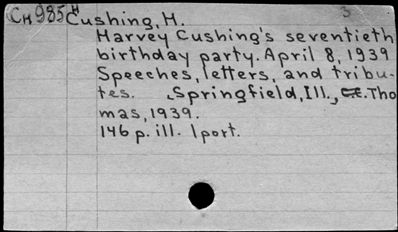 CH985H Cushing, H. 3
Harvey Cushing's seventieth
birthday party. April 8, 1939
Speeches, letters, and tribu-
tes. Springfield, Ill., C.C. Tho
mas, 1939.
146 p. ill. 1 port.